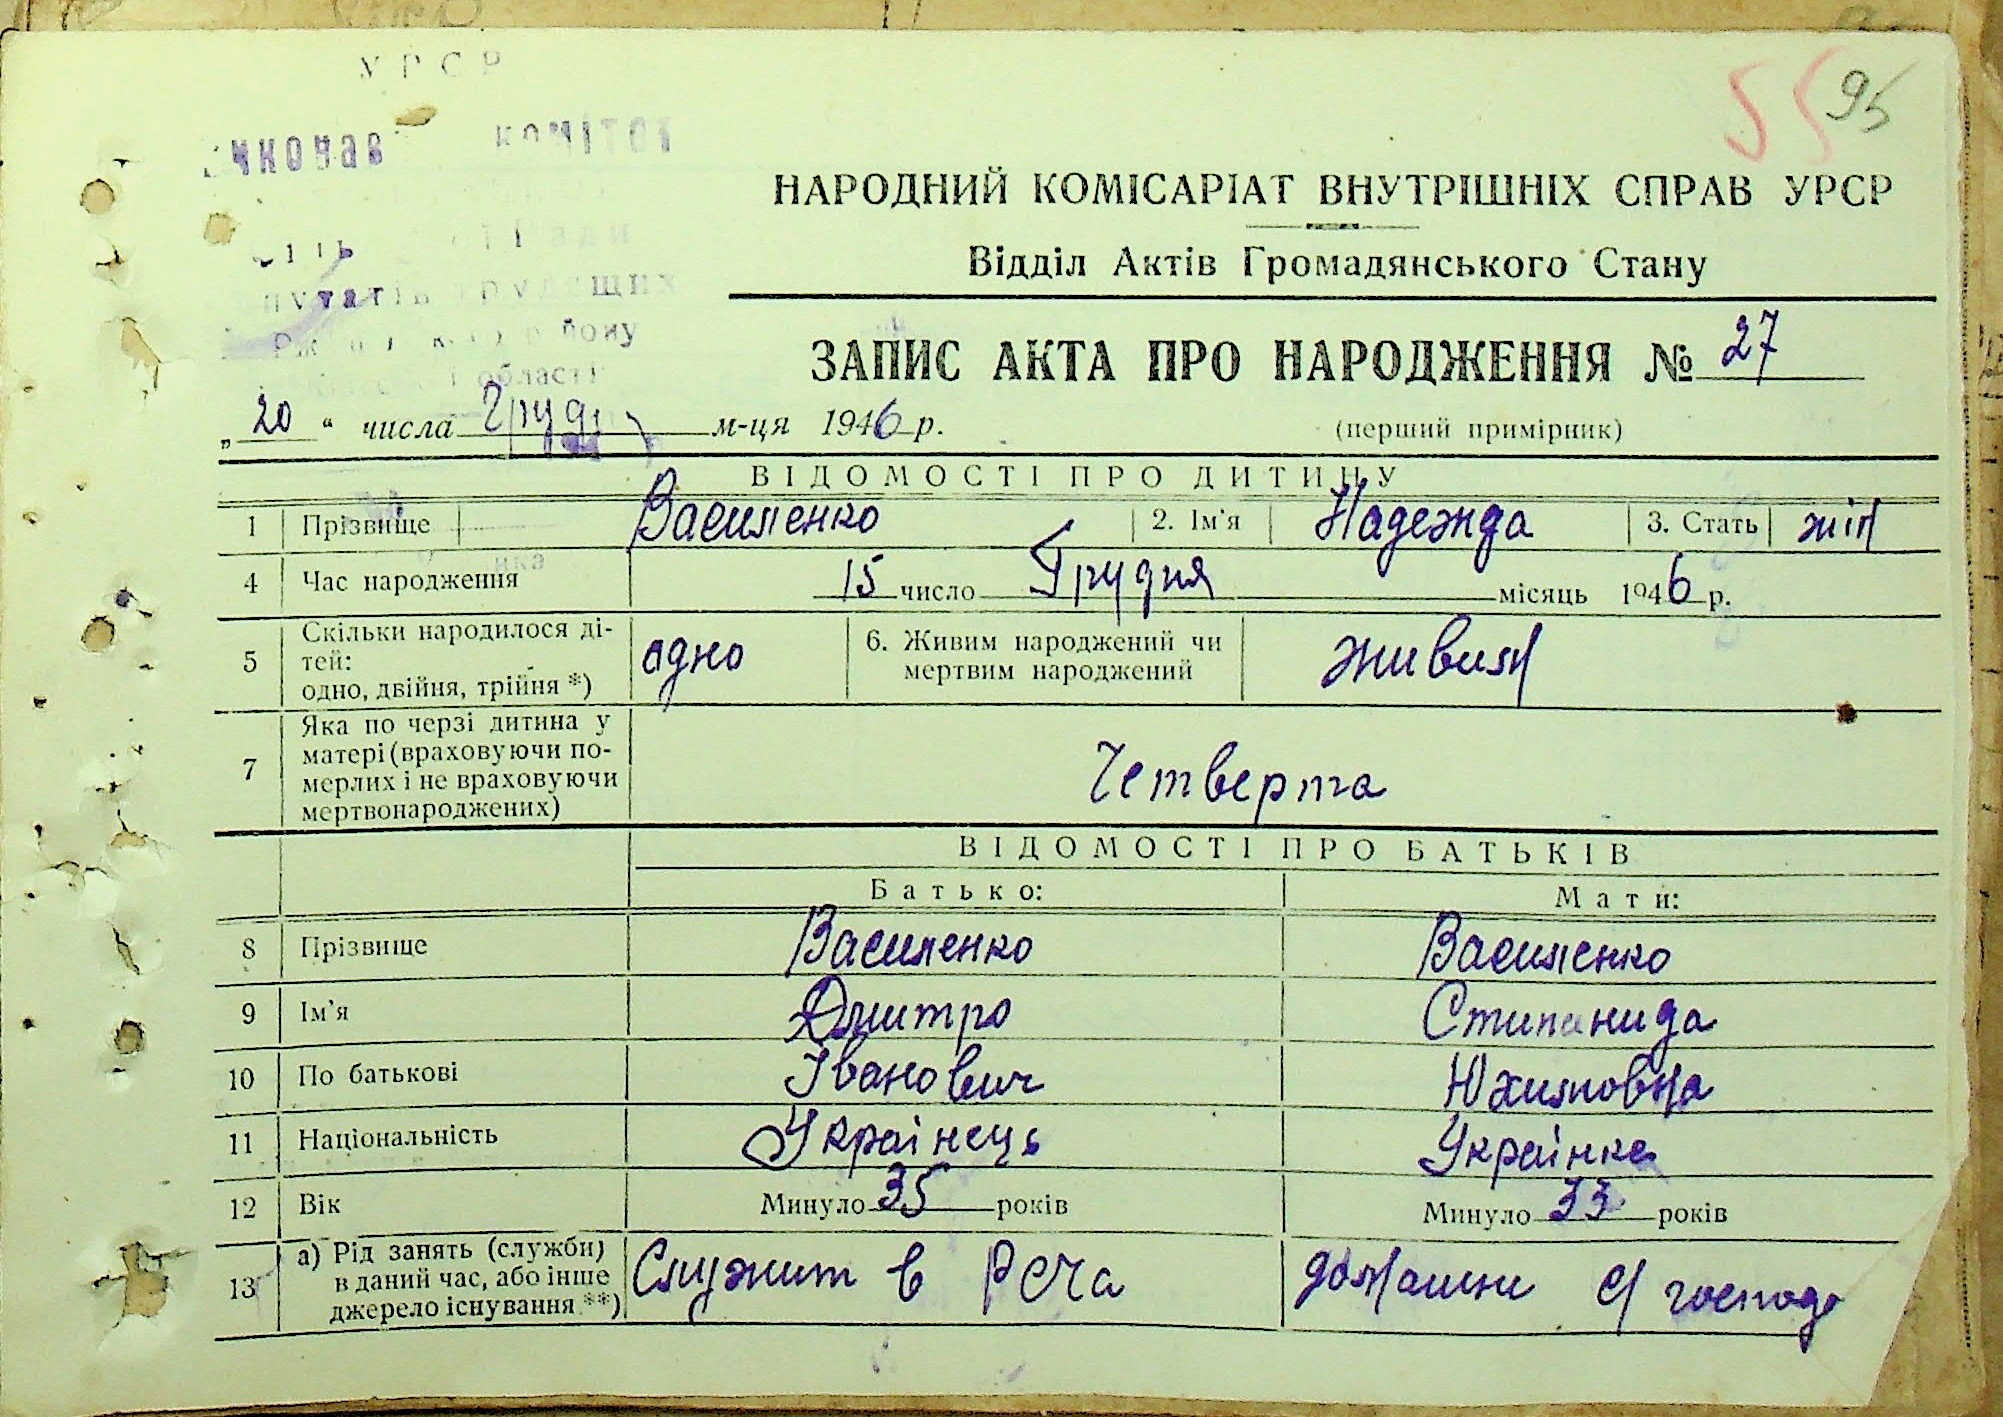 УРСР
55 95
НАРОДНИЙ КОМІСАРІАТ ВНУТРІШНІХ СПРАВ УРСР
Відділ Актів Громадянського Стану
ЗАПИС АКТА ПРО НАРОДЖЕННЯ № 27
„20“ числа Груд м-ця 1946 р. (перший примірник)
ВІДОМОСТІ ПРО ДИТИНУ
1 Прізвище Василенко 2. Ім'я Надежда 3. Стать жін
4 Час народження 15 число Грудня місяць 1946 р.
5 Скільки народилося ді-
тей:
одно, двійня, трійня *) одно 6. Живим народжений чи
мертвим народжений живим
7 Яка по черзі дитина у
матері (враховуючи по-
мерлих і не враховуючи
мертвонароджених) Четверта
ВІДОМОСТІ ПРО БАТЬКІВ
Батько: Мати:
8 Прізвище Василенко Василенко
9 Ім'я Дмитро Стипанида
10 По батькові Іванович Юхимовна
11 Національність Українець Українка
12 Вік Минуло 35 років Минуло 33 років
13 а) Рід занять (служби)
в даний час, або інше
джерело існування **) Служит в РСЧа домашне господ